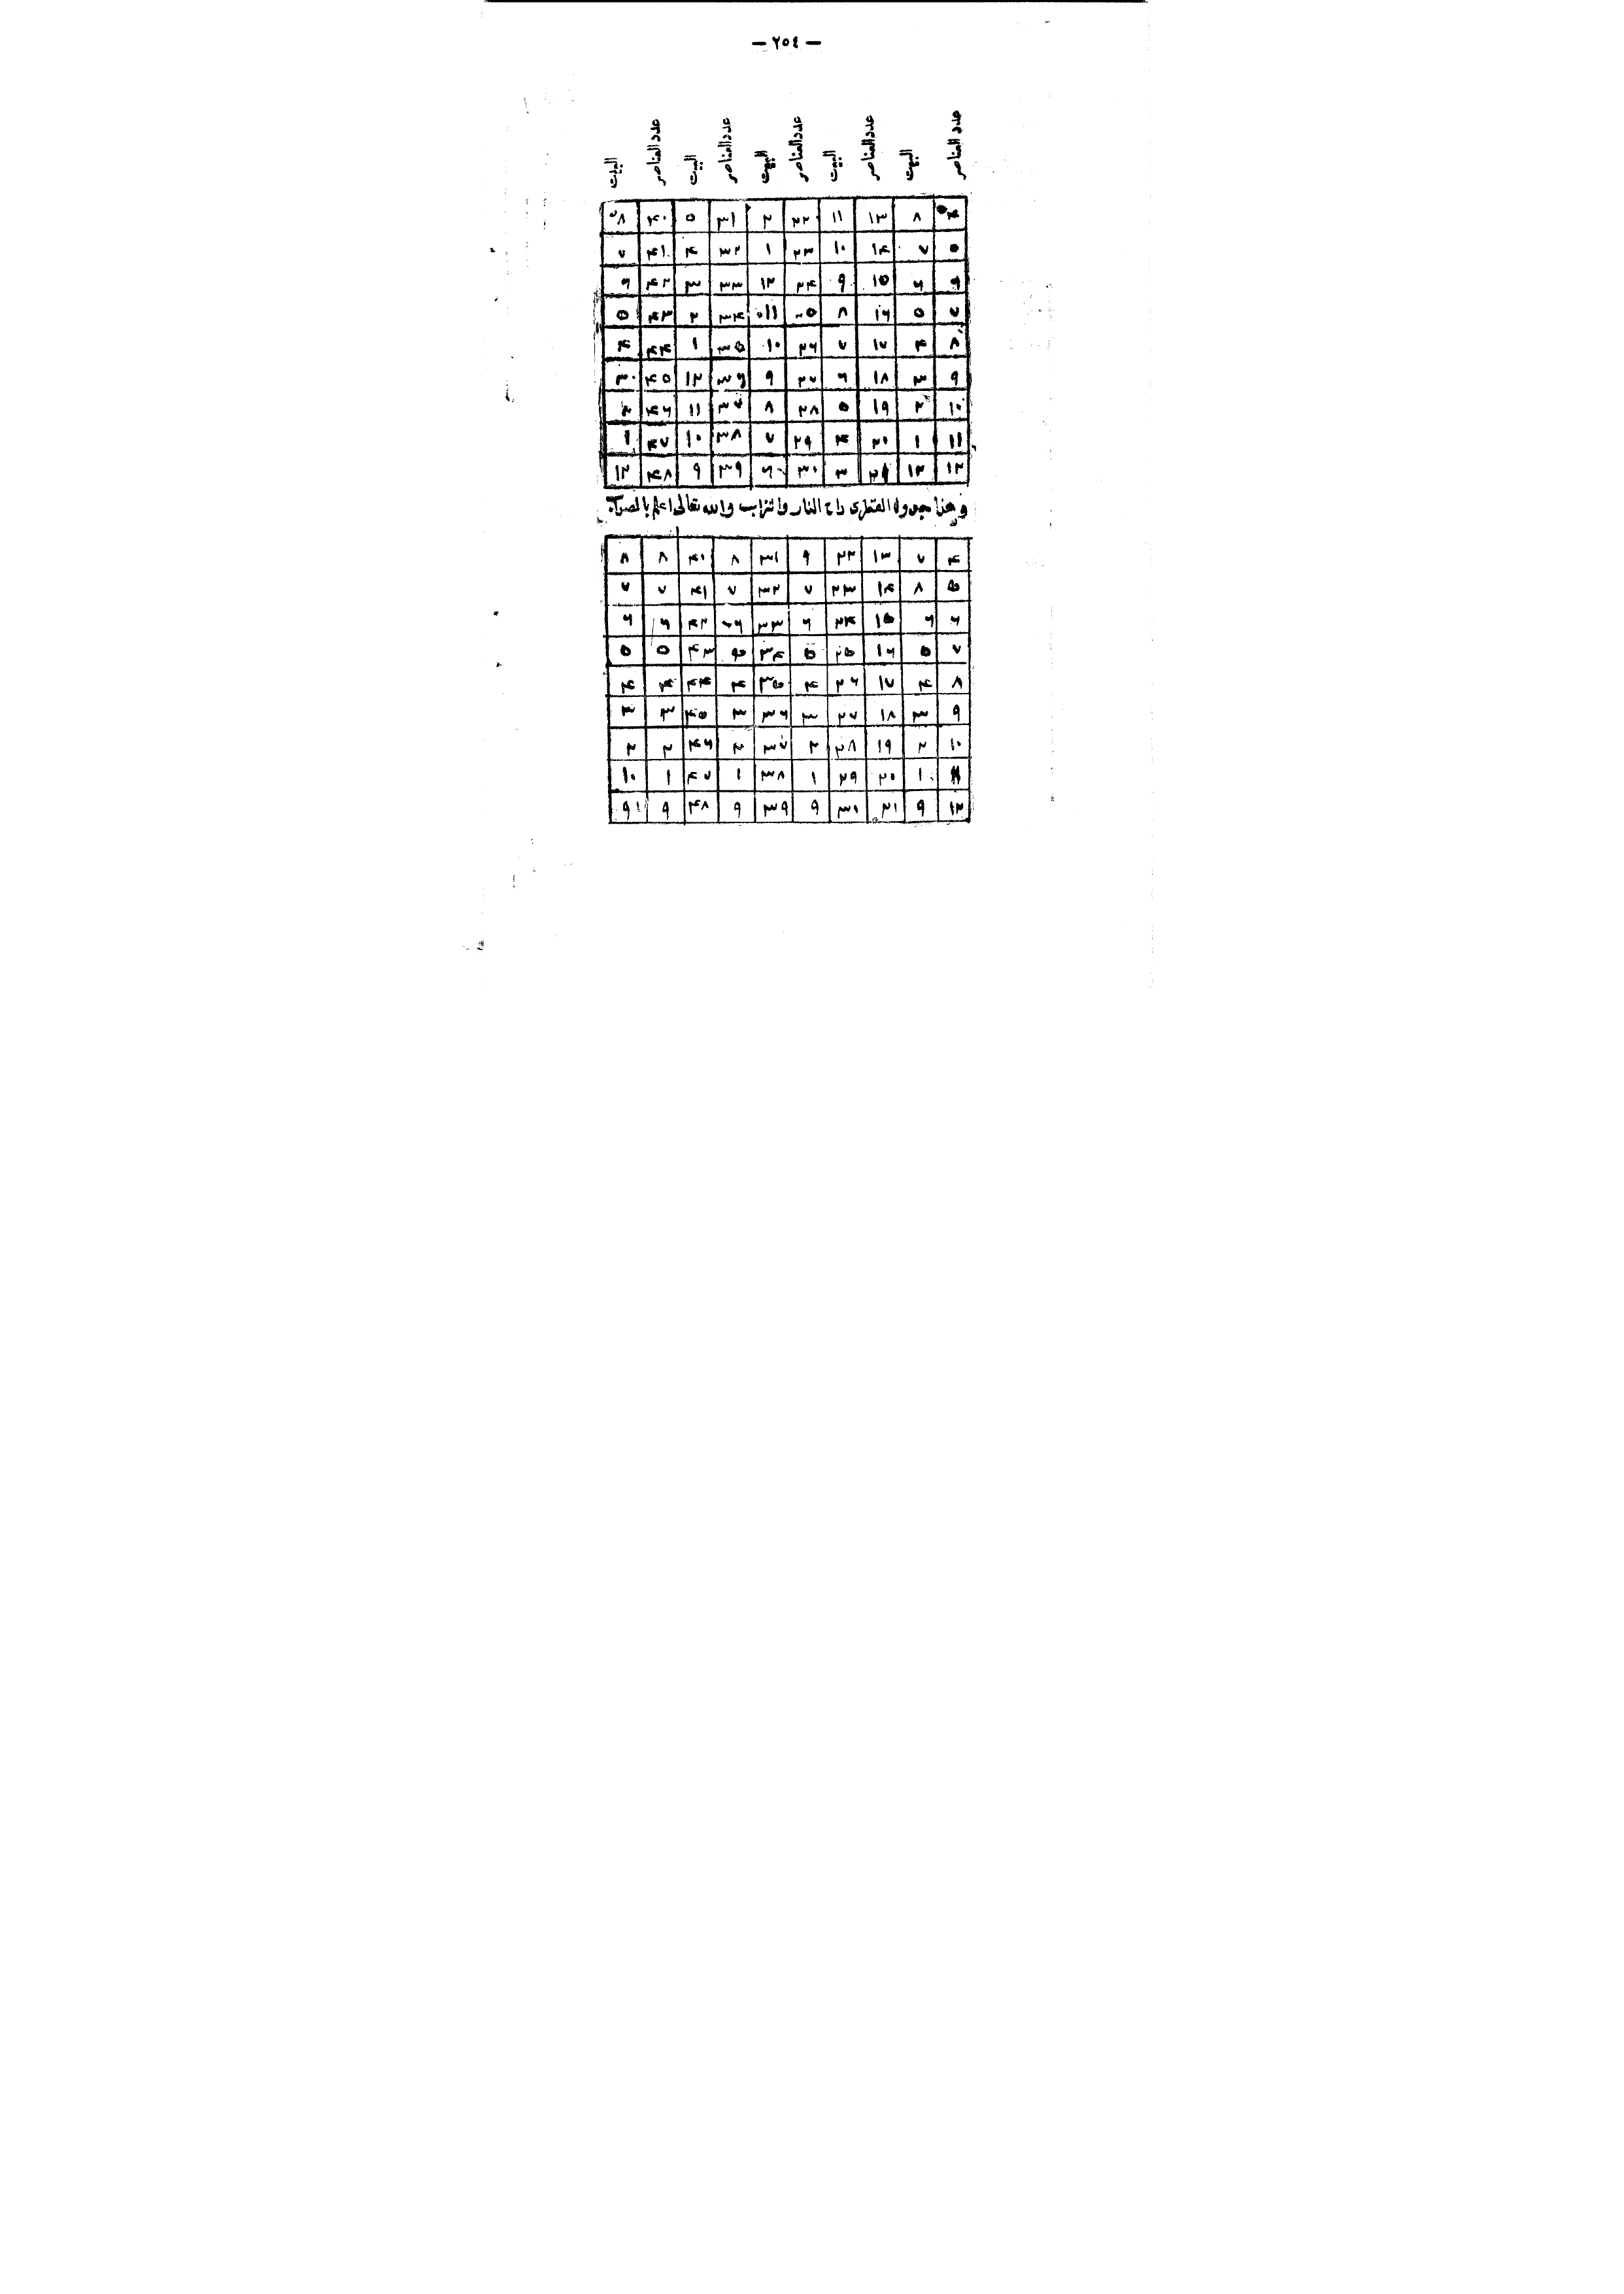 — ٢٥٤ —
عدد العناصر البيت عدد العناصر البيت عدد العناصر البيت عدد العناصر البيت عدد العناصر البيت
٤ ٨ ١٣ ١١ ٢٢ ٢ ٣١ ٥ ٤٠ ٨
٥ ٧ ١٤ ١٠ ٢٣ ١ ٣٢ ٤ ٤١ ٧
٦ ٦ ١٥ ٩ ٢٤ ١٢ ٣٣ ٣ ٤٢ ٦
٧ ٥ ١٦ ٨ ٢٥ ١١ ٣٤ ٢ ٤٣ ٥
٨ ٤ ١٧ ٧ ٢٦ ١٠ ٣٥ ١ ٤٤ ٤
٩ ٣ ١٨ ٦ ٢٧ ٩ ٣٦ ١٢ ٤٥ ٣
١٠ ٢ ١٩ ٥ ٢٨ ٨ ٣٧ ١١ ٤٦ ٢
١١ ١ ٢٠ ٤ ٢٩ ٧ ٣٨ ١٠ ٤٧ ١
١٢ ١٢ ٢١ ٣ ٣٠ ٦ ٣٩ ٩ ٤٨ ١٢
وهذا جدول النار والتراب والله تعالى اعلم بالصواب
٤ ٧ ١٣ ٢٢ ٩ ٣١ ٨ ٤٠ ٨ ٨
٥ ٨ ١٤ ٢٣ ٧ ٣٢ ٧ ٤١ ٧ ٧
٦ ٦ ١٥ ٢٤ ٦ ٣٣ ٦ ٤٢ ٦ ٦
٧ ٥ ١٦ ٢٥ ٥ ٣٤ ٥ ٤٣ ٥ ٥
٨ ٤ ١٧ ٢٦ ٤ ٣٥ ٤ ٤٤ ٤ ٤
٩ ٣ ١٨ ٢٧ ٣ ٣٦ ٣ ٤٥ ٣ ٣
١٠ ٢ ١٩ ٢٨ ٢ ٣٧ ٢ ٤٦ ٢ ٢
١١ ١ ٢٠ ٢٩ ١ ٣٨ ١ ٤٧ ١ ١٠
١٢ ٩ ٢١ ٣١ ٩ ٣٩ ٩ ٤٨ ٩ ٩